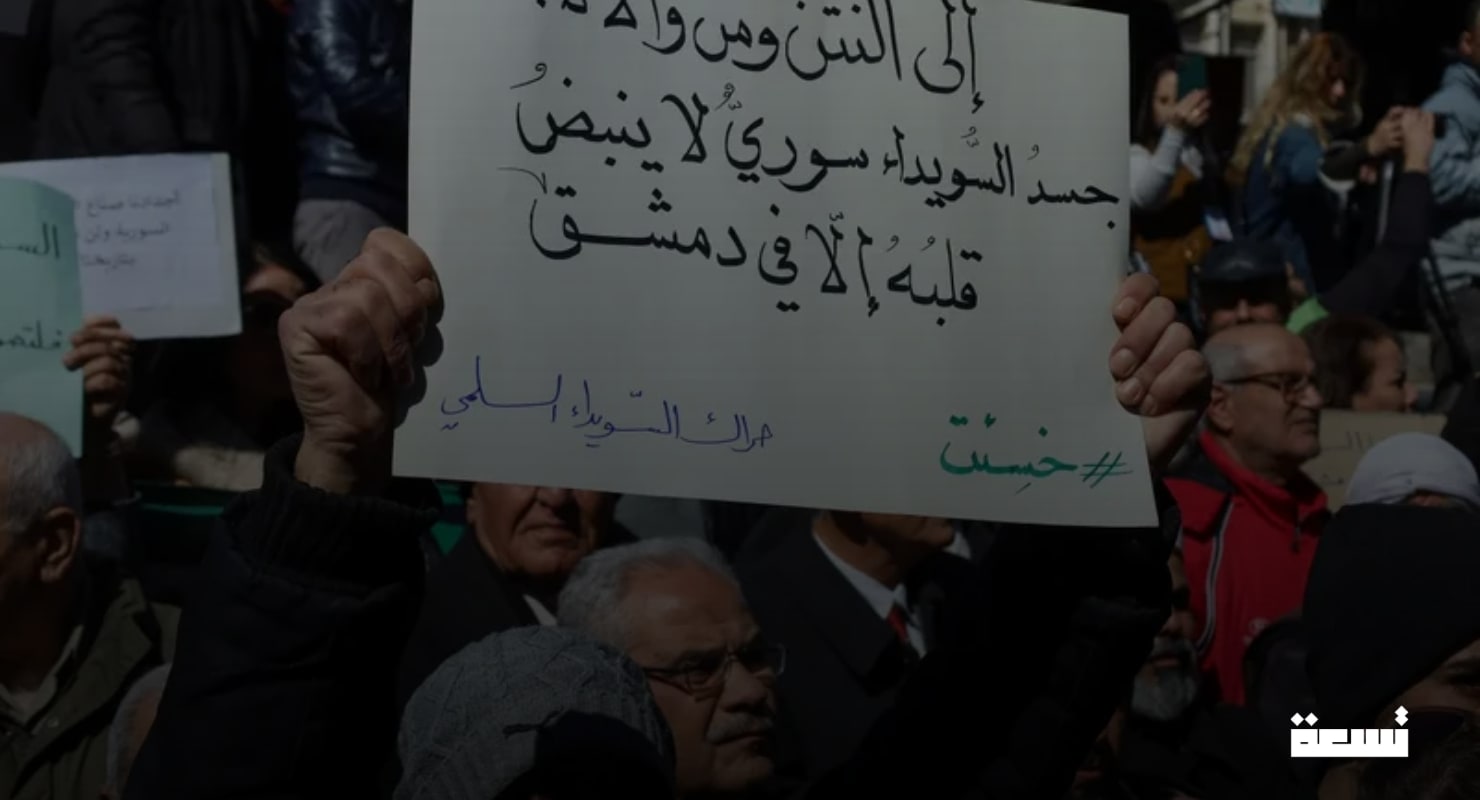 إلى النتن ومن والاه
جسدُ السُّويداء سوريٌّ لا ينبضُ
قلبُهُ إلّا في دمشق
حراك السّويداء السلمي
#خسئت
أجدادنا صناع
السورية ولن
بتاريخنا
السـ
تسعة